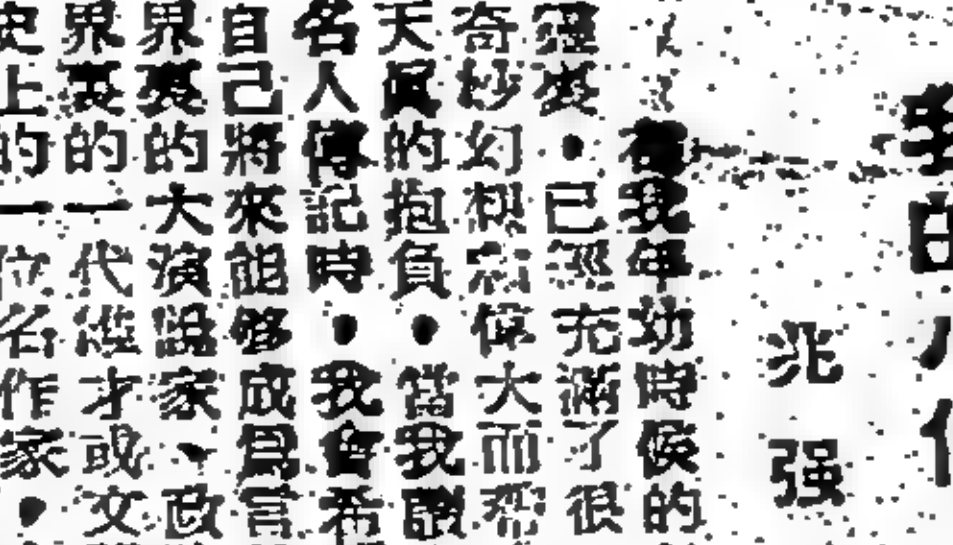 我的
兆强
在我年幼時候的
裏·已經充滿了很
奇妙幻想和偉大而
天眞的抱負·當我讀
名人傳記時·我會希
自己將來能够成爲言
界裏的大演說家、政
界裏的一代才或文
史上的一位名作家·